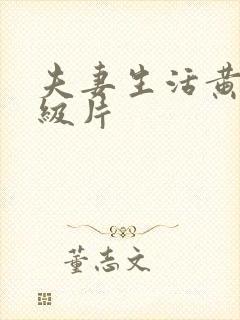 夫妻生活黄
级片
董志文